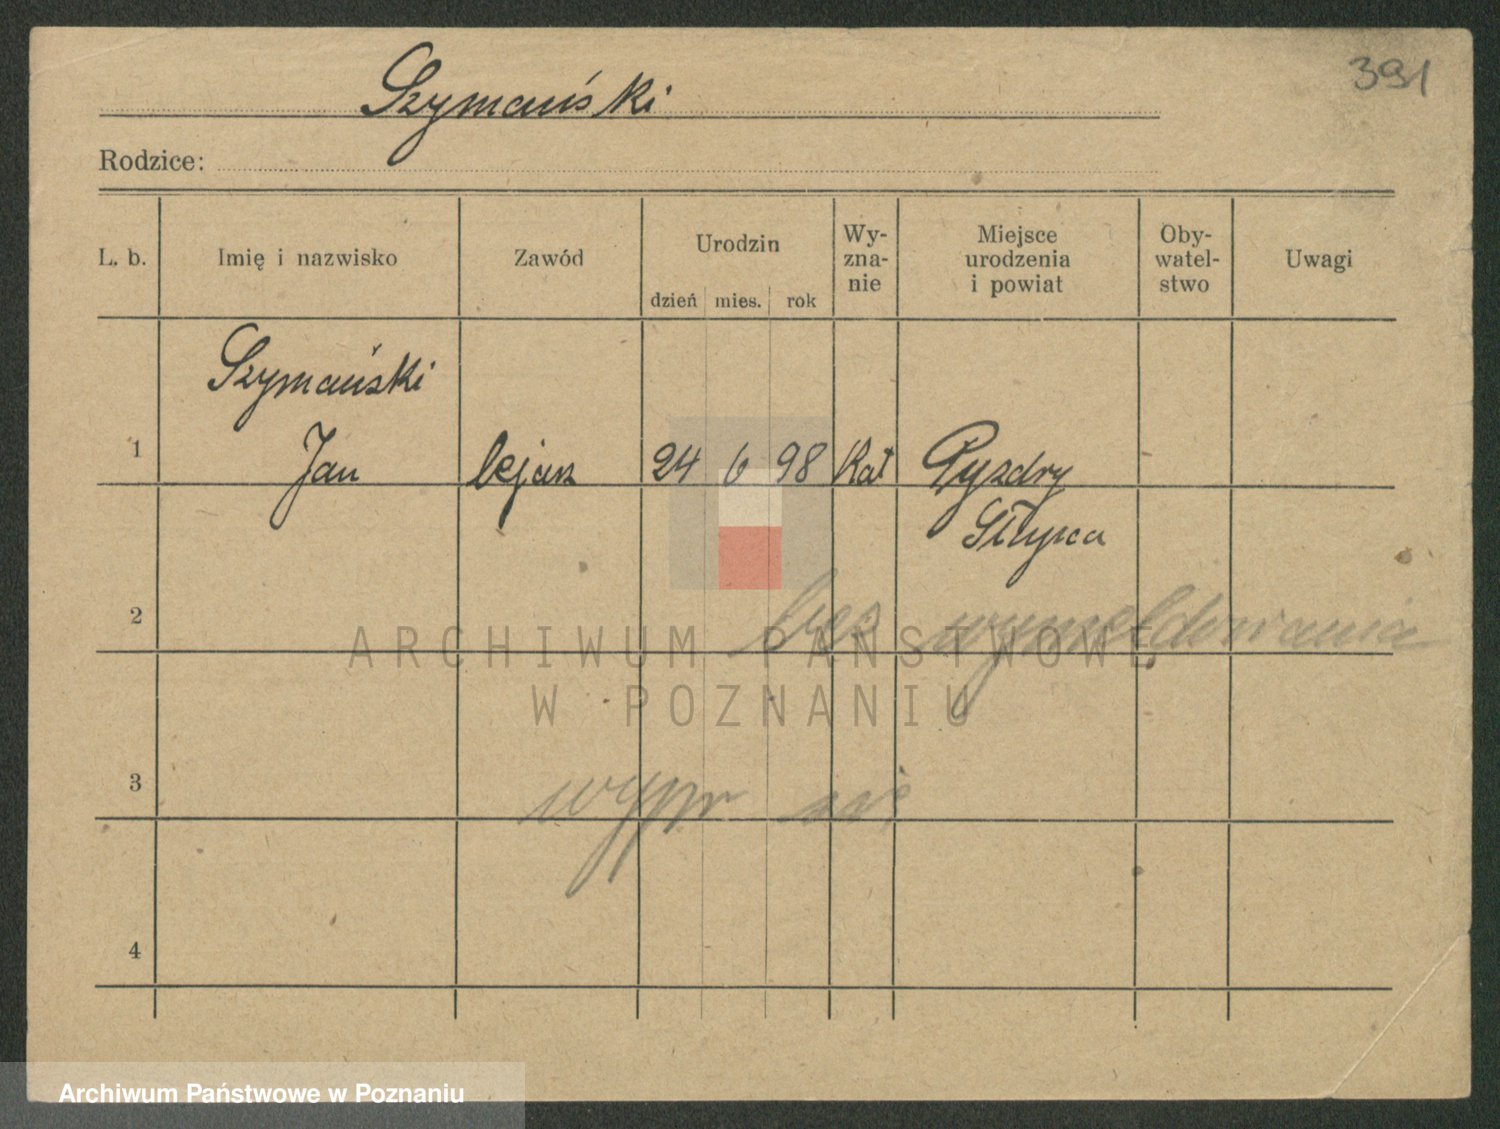 391
Szymański
Rodzice:
L. b.
Imię i nazwisko
Zawód
Urodzin
dzień mies. rok
Wy-
zna-
nie
Miejsce
urodzenia
i powiat
Oby-
watel-
stwo
Uwagi
Szymański
1 Jan lejarz 24 6 98 Kat Pyzdry
Słupca
2 bez wymeldowania
ARCHIWUM PAŃSTWOWE
W POZNANIU
3 wypr się
4
Archiwum Państwowe w Poznaniu